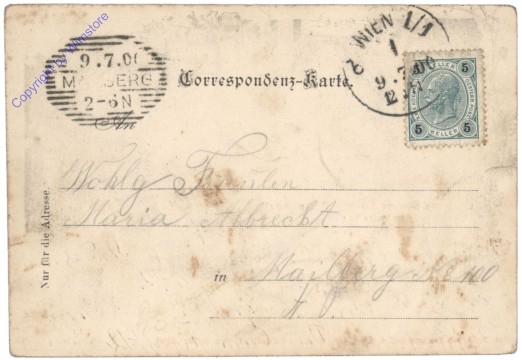 9.7.00
MAILBERG
2-6N
WIEN 1/1
1
9.7.00
Correspondenz-Karte.
5 5
HELLER
5 5
An
Wohlg Fräulen
Maria Albrecht
in Mailberg No 100
N. Ö.
Nur für die Adresse.